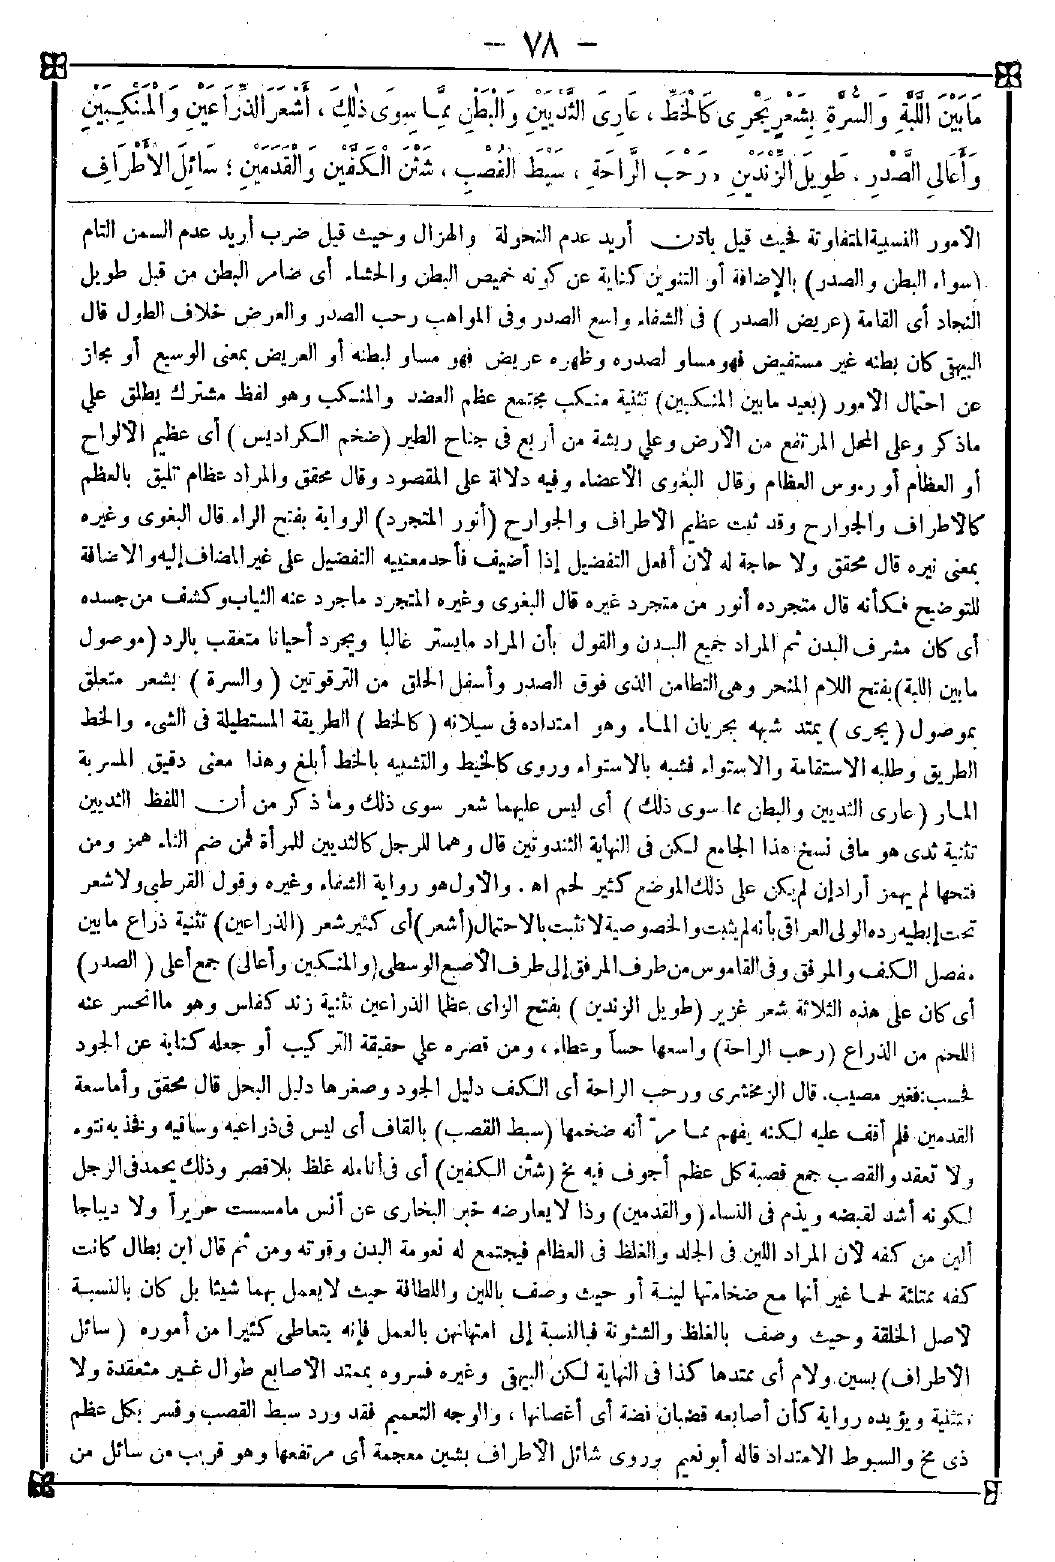 — ٧٨ —
مَا بَيْنَ اللَّبَّةِ وَالسُّرَّةِ بِشَعْرٍ يَجْرِى كَالْخَطِّ ، عَارِىَ الثَّدْيَيْنِ وَالْبَطْنِ مِمَّا سِوَى ذٰلِكَ ، أَشْعَرَ الذِّرَاعَيْنِ وَالْمَنْكِبَيْنِ
وَأَعَالِى الصَّدْرِ ، طَوِيلَ الزَّنْدَيْنِ ، رَحْبَ الرَّاحَةِ ، سَبْطَ الْقَصَبِ ، شَثْنَ الْكَفَّيْنِ وَالْقَدَمَيْنِ ؛ سَائِلَ الْأَطْرَافِ
الأمور النسبية المتفاوتة فحيث قيل بادن أريد عدم النحولة والهزال وحيث قيل ضرب أريد عدم السمن التام
(سواء البطن والصدر) بالإضافة أو التنوين كناية عن كونه خميص البطن والحشاء أى ضامر البطن من قبل طويل
النجاد أى القامة (عريض الصدر) فى الشفاء واسع الصدر وفى المواهب رحب الصدر والعرض خلاف الطول قال
البيهقى كان بطنه غير مستفيض فهو مساو لصدره وظهره عريض فهو مساو لبطنه أو العريض بمعنى الوسيع أو مجاز
عن احتمال الأمور (بعيد ما بين المنكبين) تثنية منكب مجتمع عظم العضد والمنكب وهو لفظ مشترك يطلق على
ما ذكر وعلى المحل المرتفع من الأرض وعلى ريشة من أربع فى جناح الطير (ضخم الكراديس) أى عظيم الألواح
أو العظام أو رءوس العظام وقال البغوى الأعضاء وفيه دلالة على المقصود وقال محقق والمراد عظام تليق بالعظم
كالأطراف والجوارح وقد ثبت عظيم الأطراف والجوارح (أنور المتجرد) الرواية بفتح الراء قال البغوى وغيره
بمعنى نيره قال محقق ولا حاجة له لأن أفعل التفضيل إذا أضيف فأحد معنييه التفضيل على غير المضاف إليه والاضافة
للتوضيح فكأنه قال متجرده أنور من متجرد غيره قال البغوى وغيره المتجرد ما جرد عنه الثياب وكشف من جسده
أى كان مشرف البدن ثم المراد جميع البدن والقول بأن المراد ما يستر غالبا ويجرد أحيانا متعقب بالرد (موصول
ما بين اللبة) بفتح اللام المنحر وهى التطامن الذى فوق الصدر وأسفل الحلق من الترقوتين (والسرة) بشعر متعلق
بموصول (يجرى) يمتد شبه بجريان الماء وهو امتداده فى سيلانه (كالخط) الطريقة المستطيلة فى الشىء والخط
الطريق وطلبه الاستقامة والاستواء فشبه بالاستواء وروى كالخيط والتشبيه بالخط أبلغ وهذا معنى دقيق المسربة
المار (عارى الثديين والبطن مما سوى ذلك) أى ليس عليهما شعر سوى ذلك وما ذكر من أن اللفظ الثديين
تثنية ثدى هو ما فى نسخ هذا الجامع لكن فى النهاية الثندوتين قال وهما للرجل كالثديين للمرأة فمن ضم الثاء همز ومن
فتحها لم يهمز أراد إن لم يكن على ذلك الموضع كثير لحم اه . والأول هو رواية الشفاء وغيره وقول القرطبى ولا شعر
تحت إبطيه رده الولى العراقى بأنه لم يثبت والخصوصية لا تثبت بالاحتمال (أشعر) أى كثير شعر (الذراعين) تثنية ذراع ما بين
مفصل الكف والمرفق وفى القاموس من طرف المرفق إلى طرف الأصبع الوسطى (والمنكبين وأعالى) جمع أعلى (الصدر)
أى كان على هذه الثلاثة شعر غزير (طويل الزندين) بفتح الزاى عظما الذراعين تثنية زند كفلس وهو ما انحسر عنه
اللحم من الذراع (رحب الراحة) واسعها حساً وعطاء ، ومن قصره على حقيقة التركيب أو جعله كناية عن الجود
فحسب : فغير مصيب . قال الزمخشرى ورحب الراحة أى الكف دليل الجود وصغرها دليل البخل قال محقق وأما سعة
القدمين فلم أقف عليه لكنه يفهم مما مرّ أنه ضخمها (سبط القصب) بالقاف أى ليس فى ذراعيه وساقيه وفخذيه نتوء
ولا تعقد والقصب جمع قصبة كل عظم أجوف فيه مخ (شثن الكفين) أى فى أنامله غلظ بلا قصر وذلك يحمد فى الرجل
لكونه أشد لقبضه ويذم فى النساء (والقدمين) وذا لا يعارضه خبر البخارى عن أنس ما مسست حريراً ولا ديباجا
ألين من كفه لأن المراد اللين فى الجلد والغلظ فى العظام فيجتمع له نعومة البدن وقوته ومن ثم قال ابن بطال كانت
كفه ممتلئة لحما غير أنها مع ضخامتها لينة أو حيث وصف باللين واللطافة حيث لا يعمل بهما شيئا بل كان بالنسبة
لأصل الخلقة وحيث وصف بالغلظ والشثونة فبالنسبة إلى امتهانهن بالعمل فإنه يتعاطى كثيرا من أموره (سائل
الأطراف) بسين ولام أى ممتدها كذا فى النهاية لكن البيهقى وغيره فسروه بممتد الأصابع طوال غير متعقدة ولا
متثنية ويؤيده رواية كأن أصابعه قضبان فضة أى أغصانها ، والوجه التعميم فقد ورد سبط القصب وفسر بكل عظم
ذى مخ والسبوط الامتداد قاله أبو نعيم وروى شائل الأطراف بشين معجمة أى مرتفعها وهو قريب من سائل من